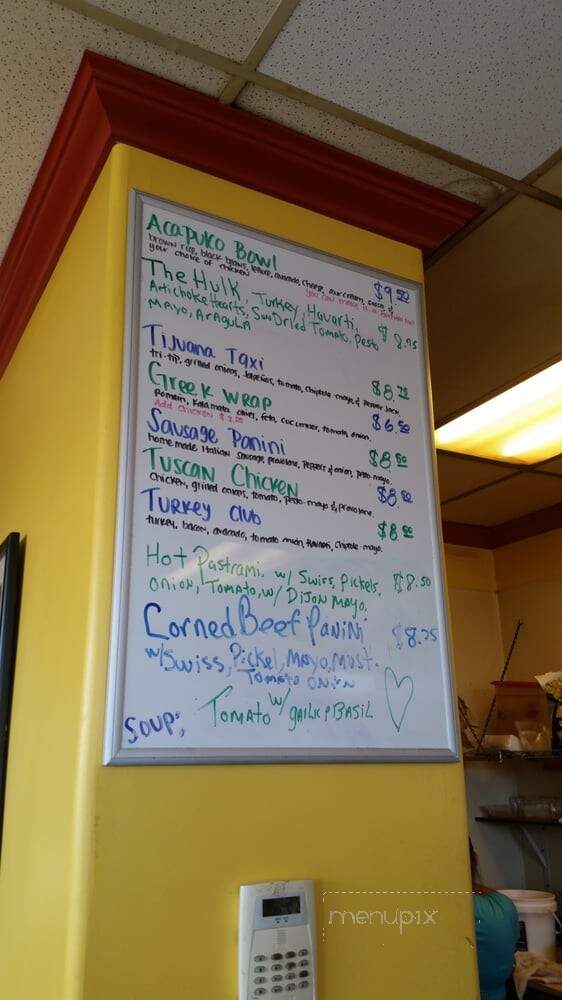 Acapulco Bowl
brown rice, black beans, lettuce, avocado, cheese, sour cream, salsa &
your choice of chicken
$9.50
you can make it a
The Hulk, Turkey, Havarti,
Artichoke Hearts, Sun Dried Tomato, Pesto
Mayo, Aragula
$8.75
Tijuana Taxi
tri-tip, grilled onions, Jalapeños, tomato, Chipotle-mayo & Pepper Jack.
$8.75
Greek Wrap
Romain, Kalamata olives, feta, cucumber, tomato, onion.
Add chicken
$6.50
Sausage Panini
home made Italian Sausage, provolone, Peppers & onion, pesto-mayo.
$8.50
Tuscan Chicken
Chicken, grilled onions, tomato, pesto-mayo & provolone.
$8.50
Turkey Club
turkey, bacon, avocado, tomato, Havarti, Chipotle-mayo.
$8.50
Hot Pastrami, w/ Swiss, Pickels,
Onion, Tomato, w/ Dijon Mayo,
$8.50
Corned Beef Panini
$8.75
w/Swiss, Pickel, Mayo, Must.
Tomato Onion
Soup: Tomato w/ gailic & Basil
menupix